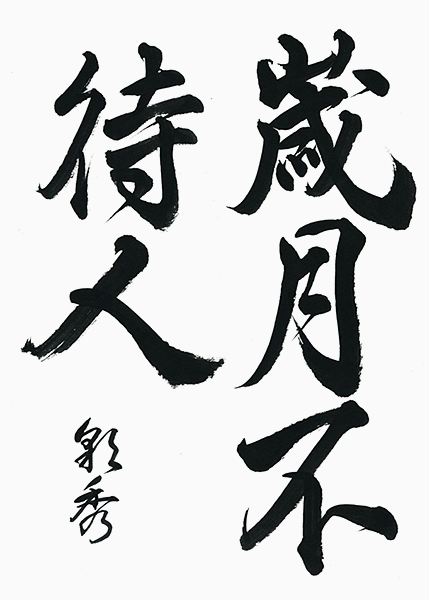 歳月不
待人
彰秀